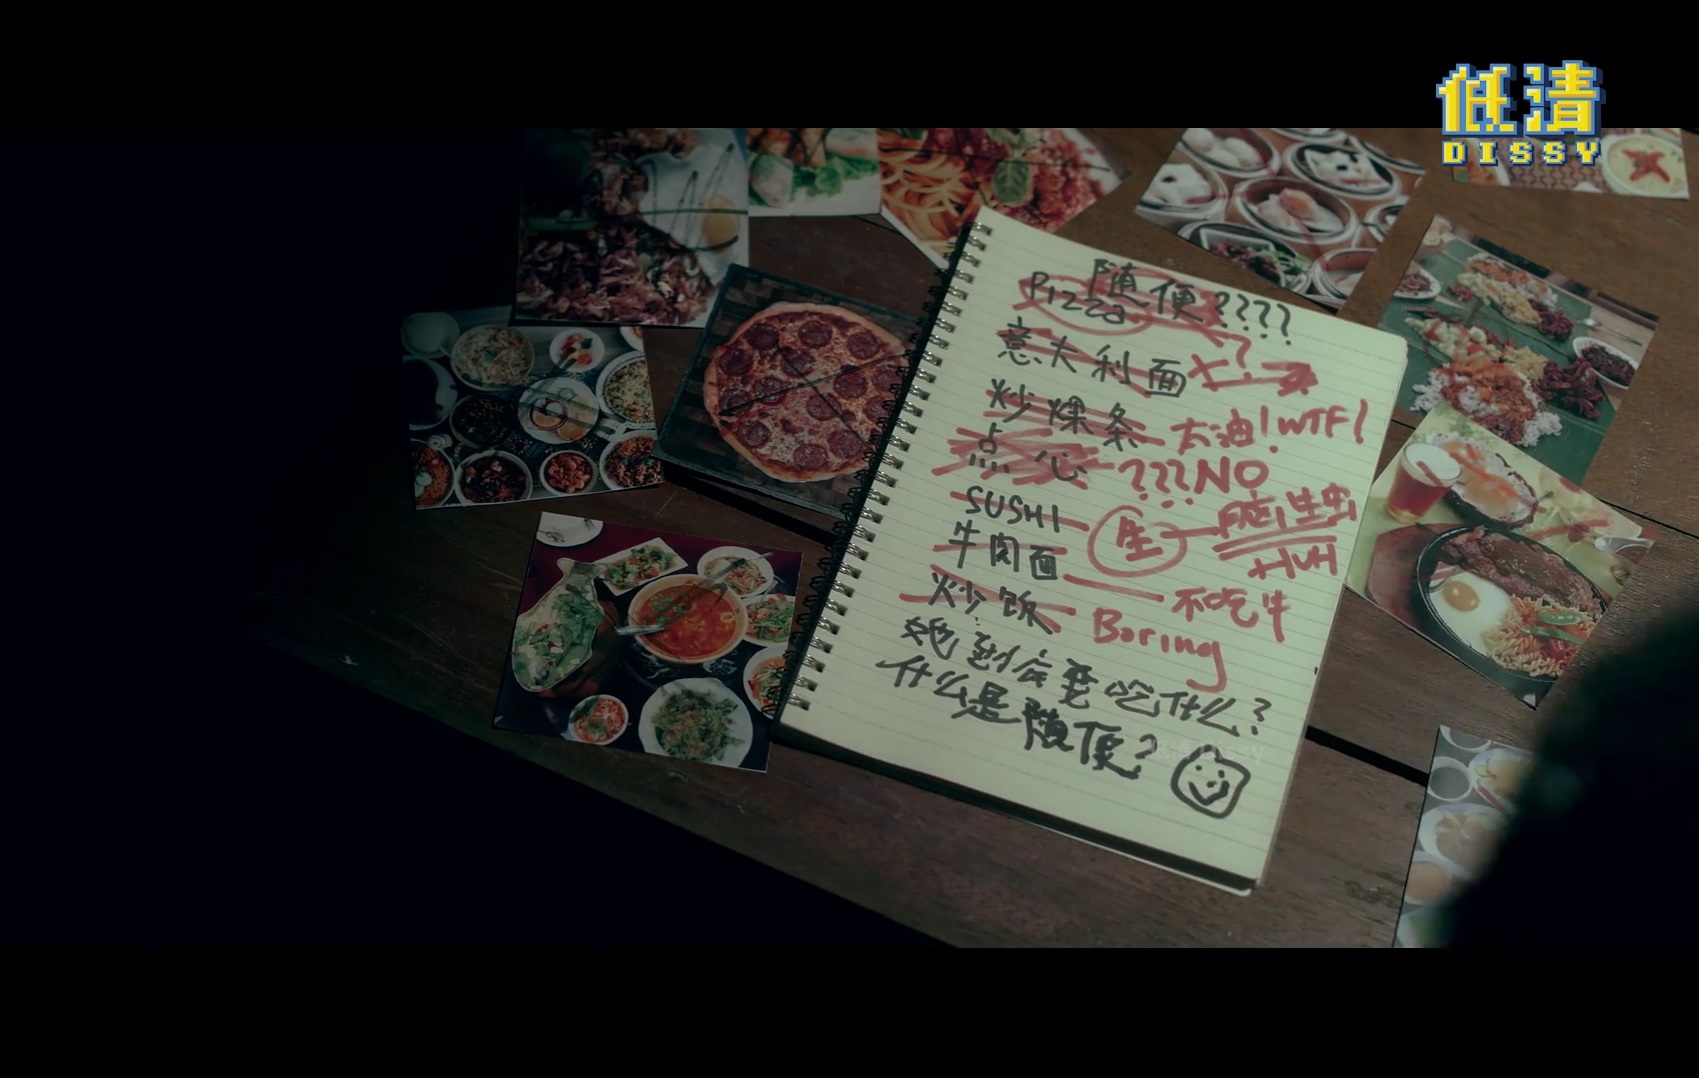 低清
DISSY
随便????
Pizza
?
意大利面
炒粿条 太油! WTF!
点心 ???NO
SUSHI 生 脑生虫
HUH
牛肉面 不吃牛
炒饭 Boring
她到底要吃什么?
什么是随便?